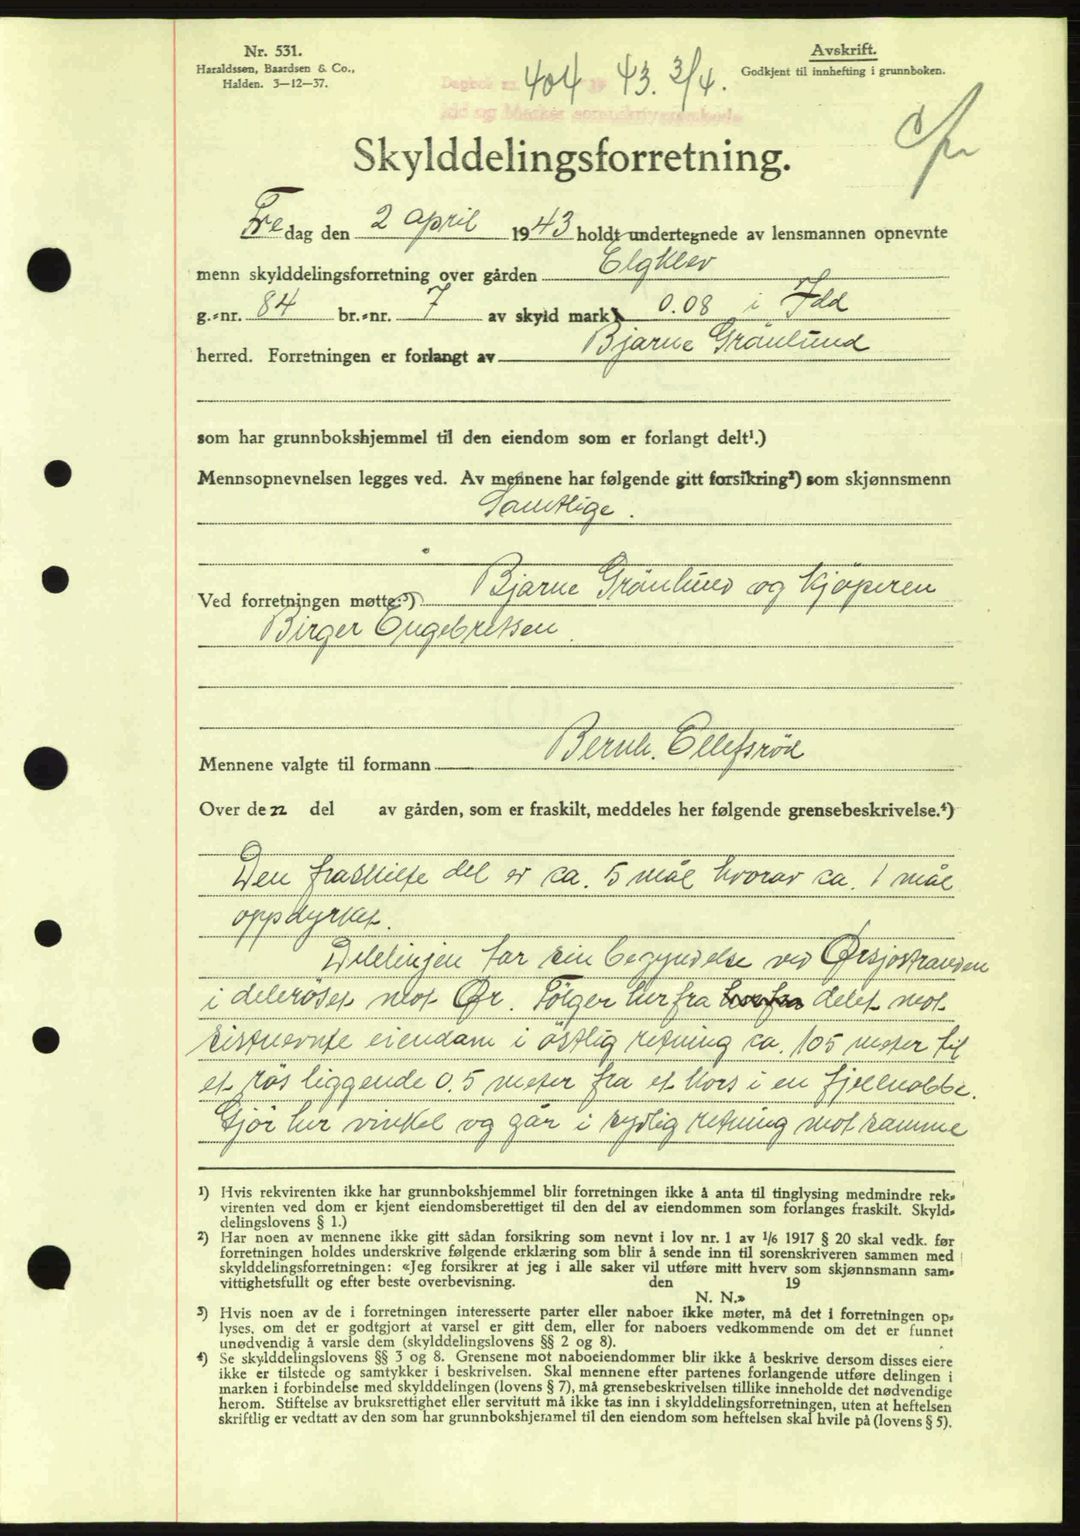 Nr. 531.
Haraldssen, Baardsen & Co.,
Halden. 3—12—37.
Avskrift.
Godkjent til innhefting i grunnboken.
Dagbok nr. 404 19 43. 3/4.
Idd og Marker sorenskriverembede
Skylddelingsforretning.
Fredag den 2 april 1943 holdt undertegnede av lensmannen opnevnte
menn skylddelingsforretning over gården Elgklev
g.-nr. 84 br.-nr. 7 av skyld mark 0.08 i Idd
herred. Forretningen er forlangt av Bjarne Grönlund
som har grunnbokshjemmel til den eiendom som er forlangt delt¹.)
Mennsopnevnelsen legges ved. Av mennene har følgende gitt forsikring²) som skjønnsmenn
Samtlige.
Ved forretningen møtte:³) Bjarne Grönlund og kjöperen
Birger Engebretsen.
Mennene valgte til formann Bernh. Ellefsröd
Over den del av gården, som er fraskilt, meddeles her følgende grensebeskrivelse.⁴)
Den fraskilte del er ca. 5 mål hvorav ca. 1 mål
oppdyrket.
Delelinjen tar sin begyndelse ved Ørsjöstranden
i deleröset mot Ør. Fölger herfra delet mot
sistnevnte eiendom i östlig retning ca. 105 meter til
et rös liggende 0.5 meter fra et kors i en fjellnabbe.
Gjör her vinkel og går i sydlig retning mot samme
¹) Hvis rekvirenten ikke har grunnbokshjemmel blir forretningen ikke å anta til tinglysing medmindre rek-
virenten ved dom er kjent eiendomsberettiget til den del av eiendommen som forlanges fraskilt. Skyld-
delingslovens § 1.)
²) Har noen av mennene ikke gitt sådan forsikring som nevnt i lov nr. 1 av 1/6 1917 § 20 skal vedk. før
forretningen holdes underskrive følgende erklæring som blir å sende inn til sorenskriveren sammen med
skylddelingsforretningen: «Jeg forsikrer at jeg i alle saker vil utføre mitt hverv som skjønnsmann sam-
vittighetsfullt og efter beste overbevisning. den 19
N. N.»
³) Hvis noen av de i forretningen interesserte parter eller naboer ikke møter, må det i forretningen op-
lyses, om det er godtgjort at varsel er gitt dem, eller for naboers vedkommende om det er funnet
unødvendig å varsle dem (skylddelingslovens §§ 2 og 8).
⁴) Se skylddelingslovens §§ 3 og 8. Grensene mot naboeiendommer blir ikke å beskrive dersom disses eiere
ikke er tilstede og samtykker i beskrivelsen. Skal mennene efter partenes forlangende utføre delingen i
marken i forbindelse med skylddelingen (lovens § 7), må grensebeskrivelsen tillike inneholde det nødvendige
herom. Stiftelse av bruksrettighet eller servitutt må ikke tas inn i skylddelingsforretningen, uten at heftelsen
skriftlig er vedtatt av den som har grunnbokshjemmel til den eiendom som heftelsen skal hvile på (lovens § 5).